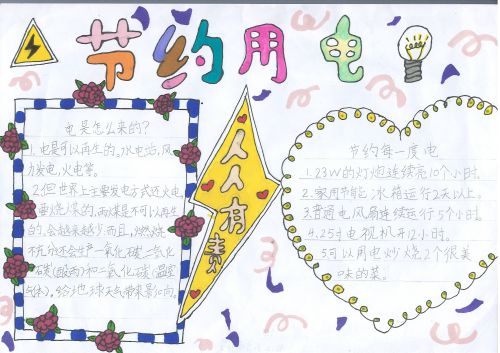 节约用电
电是怎么来的?
1.电是可以再生的。水电站,风
力发电,火电等。
2.但世界上主要发电方式还火电
要烧煤的,而煤是不可以再生
的,会越来越少,而且,燃烧
不充分还会生产一氧化碳,二氧化
碳(酸雨)和二氧化碳(温室
气体),给地球天气带来影响。
人人有责
节约每一度电
1.23W的灯炮连续亮10个小时。
2.家用节能冰箱运行2天以上。
3.普通电风扇连续运行5个小时。
4.25寸电视机开12小时。
5可以用电炒烧2个很美
味的菜。